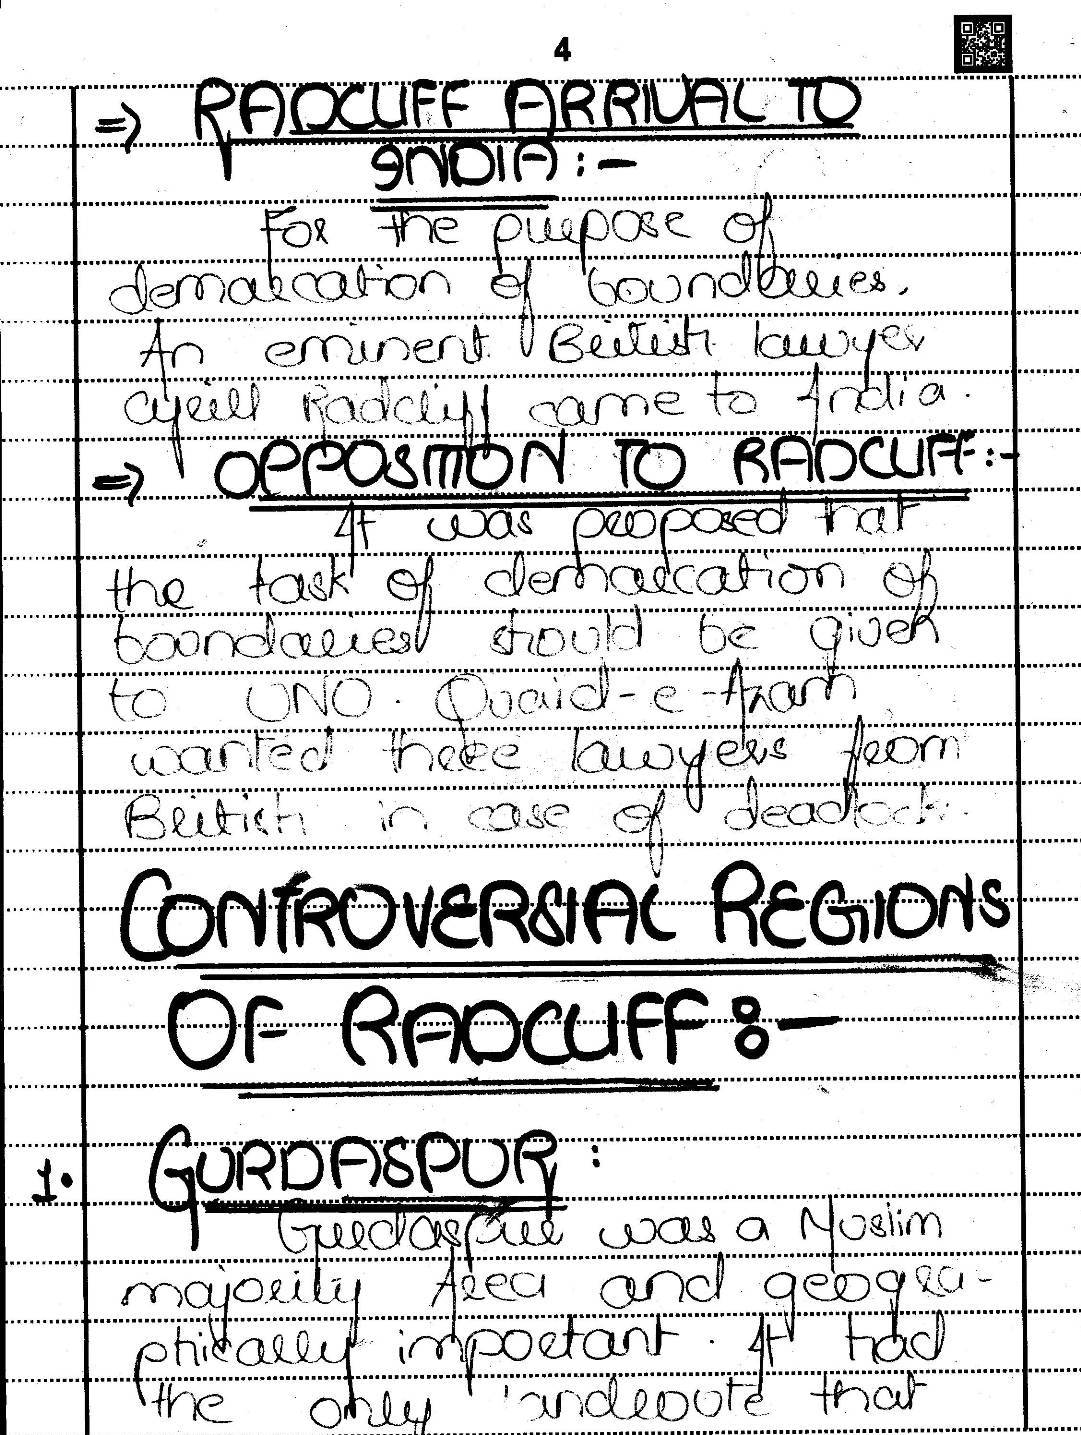 4
=> RADCLIFF ARRIVAL TO
INDIA :-
For the purpose of
demarcation of boundaries.
An eminent British lawyer
Cyrill Radcliff came to India.
=> OPPOSITION TO RADCLIFF:-
It was proposed that
the task of demarcation of
boundaries should be given
to UNO. Quaid-e-Azam
wanted three lawyers from
British in case of deadlock.
CONTROVERSIAL REGIONS
OF RADCLIFF :-
1. GURDASPUR :
Gurdaspur was a Muslim
majority Area and geogra-
phically important. It had
the only landroute that